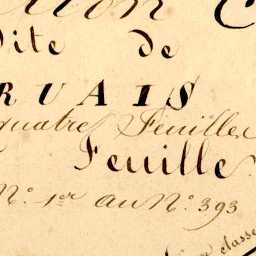 dite de
RVAIS
quatre Feuilles
Feuille
N.° 1.er au N.° 393
classe